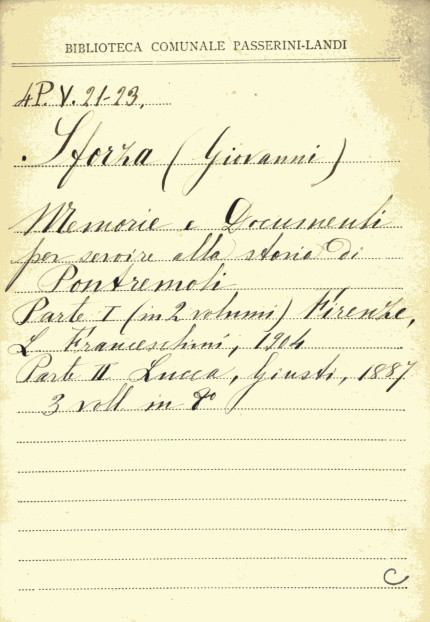 BIBLIOTECA COMUNALE PASSERINI-LANDI
4P. V. 21-23.
Sforza (Giovanni)
Memorie e Documenti
per servire alla storia di
Pontremoli
Parte I (in 2 volumi) Firenze,
L. Franceschini, 1904
Parte II Lucca, Giusti, 1887
3 voll. in 8º
C